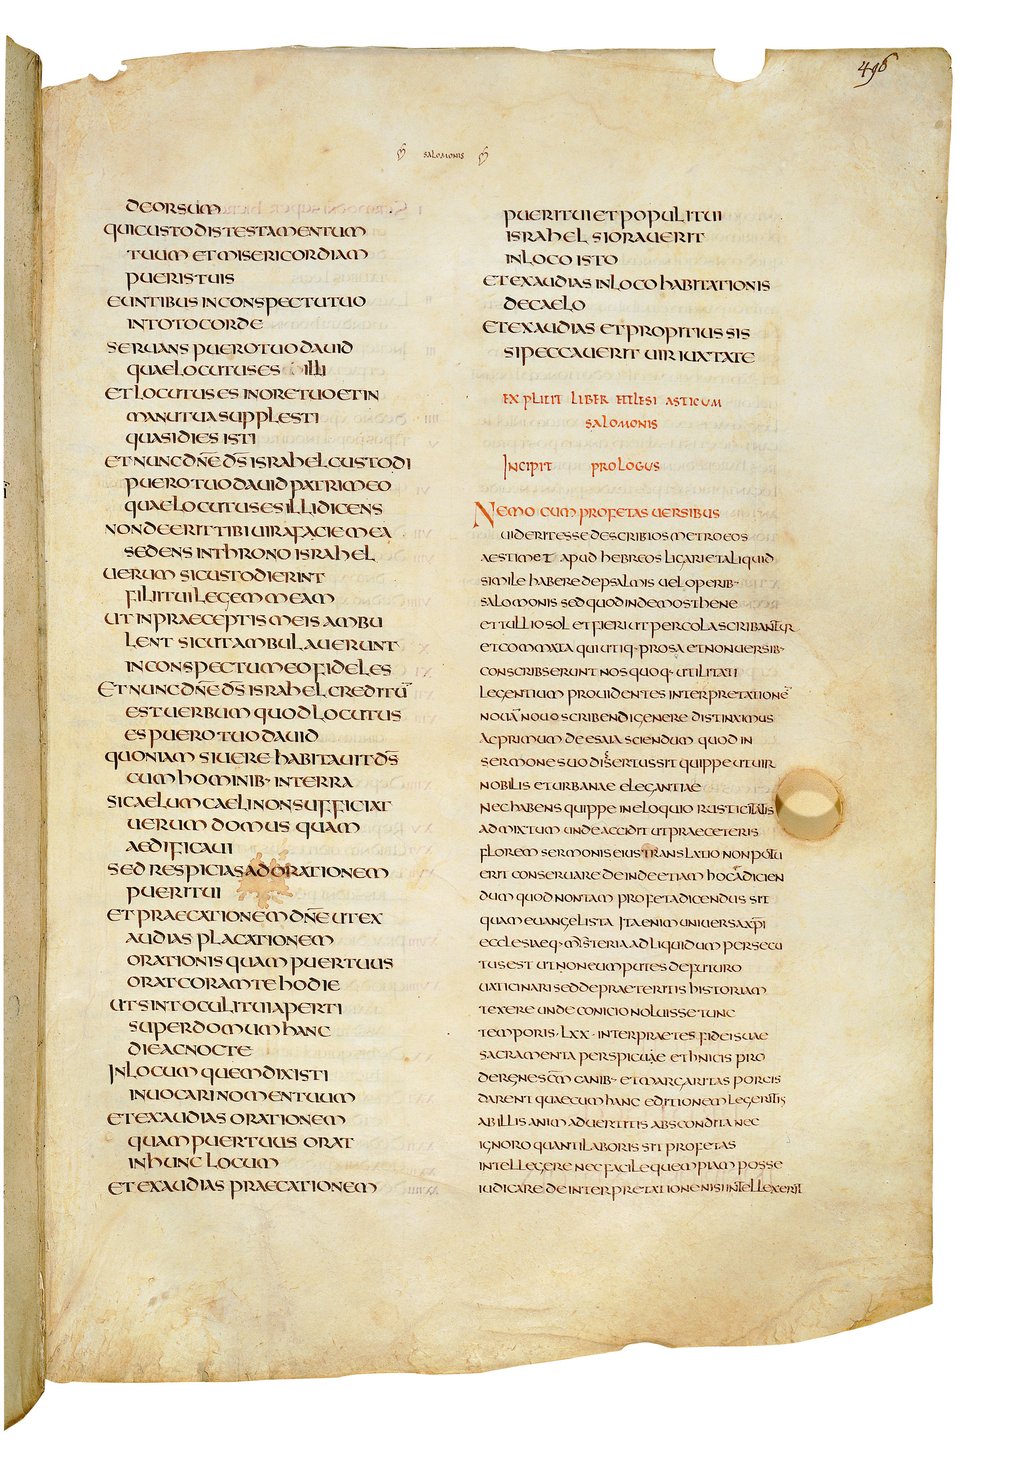 496
SALOMONIS
DEORSUM
QUICUSTODISTESTAMENTUM
TUUM ETMISERICORDIAM
PUERISTUIS
EUNTIBUS INCONSPECTUTUO
INTOTOCORDE
SERUANS PUEROTUODAUID
QUAELOCUTUSES ILLI
ETLOCUTUSES INORETUOETIN
MANUTUASUPPLESTI
QUASIDIES ISTI
ETNUNCDN̅ED̅S̅ISRAHELCUSTODI
PUEROTUODAUIDPATRIMEO
QUAELOCUTUSESILLIDICENS
NONDEERITTIBIUIRAFACIEMEA
SEDENS INTHRONO ISRAHEL
UERUM SICUSTODIERINT
FILIITUILEGEMMEAM
UTINPRAECEPTISMEIS AMBU
LENT SICUTAMBULAUERUNT
INCONSPECTUMEOFIDELES
ETNUNCDN̅ED̅S̅ISRAHELCREDITŪ
ESTUERBUM QUODLOCUTUS
ESPUEROTUODAUID
QUONIAM SIUERE HABITAUITD̅S̅
CUMHOMINIB· INTERRA
SICAELUMCAELINONSUFFICIAT
UERUM DOMUS QUAM
AEDIFICAUI
SEDRESPICIASADORATIONEM
PUERITUI
ETPRAECATIONEMDN̅EUTEX
AUDIAS PLACATIONEM
ORATIONISQUAMPUERTUUS
ORATCORAMTEHODIE
UTSINTOCULITUIAPERTI
SUPERDOMUMHANC
DIEACNOCTE
INLOCUMQUEMDIXISTI
INUOCARINOMENTUUM
ETEXAUDIAS ORATIONEM
QUAMPUERTUUS ORAT
INHUNCLOCUM
ETEXAUDIAS PRAECATIONEM
PUERITUIETPOPULITUI
ISRAHEL SIORAUERIT
INLOCO ISTO
ETEXAUDIAS INLOCOHABITATIONIS
DECAELO
ETEXAUDIAS ETPROPITIUSSIS
SIPECCAUERIT UIRIUXTATE
EXPLICIT LIBER ECLESIASTICUM
SALOMONIS
INCIPIT PROLOGUS
NEMO CUMPROFETAS UERSIBUS
UIDERITESSEDESCRIBTOSMETROEOS
AESTIMET APUD HEBREOS LIGARIETALIQUID
SIMILE HABEREDEPSALMIS UELOPERIB·
SALOMONIS SEDQUODINDEMOSTHENE
ETTULLIOSOLETFIERIUTPERCOLASCRIBANTUR
ETCOMMATA QUIUTIQ·PROSA ETNONUERSIB·
CONSCRIBSERUNTNOSQUOQ·UTILITATI
LEGENTIUM PROUIDENTES INTERPRETATIONĒ
NOUĀNOUOSCRIBENDIGENERE DISTINXIMUS
ACPRIMUM DEESAIA SCIENDUM QUODIN
SERMONESUODISERTUSSITQUIPPEUTUIR
NOBILIS ETURBANAE ELEGANTIAE
NECHABENSQUIPPE INELOQUIO RUSTICITATIS
ADMIXTUM UNDEACCIDIT UTPRAECETERIS
FLOREM SERMONISEIUSTRANSLATIO NONPOTU
ERIT CONSERUAREDEINDEETIAM HOCADICIEN
DUM QUODNONTAM PROFETADICENDUS SIT
QUAM EUANGELISTA ITAENIMUNIUERSAXP̅I
ECCLESIAEQ·MYSTERIAADLIQUIDUMPERSECU
TUSEST UTNONEUMPUTESDEFUTURO
UATICINARISEDDEPRAETERITIS HISTORIAM
TEXERE UNDECONICIONOLUISSETUNC
TEMPORIS·LXX·INTERPRAETES FIDEISUAE
SACRAMENTA PERSPICUAE ETHNICIS PRO
DERENESC̅M̅ CANIB·ETMARGARITAS PORCIS
DARENT QUAECUMHANC EDITIONEMLEGERITIS
ABILLIS ANIMADUERTITIS ABSCONDITA NEC
IGNOROQUANTILABORIS SIT PROFETAS
INTELLEGERE NECFACILEQUEMPIAM POSSE
IUDICARE DEINTERPRETATIONENISIINTELLEXERIT